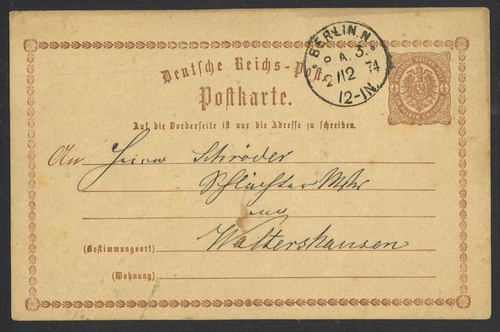 BERLIN.N.
P.A.3.
2/12 74
12-1N.
Deutsche Reichs-Post
Postkarte.
Auf die Vorderseite ist nur die Adresse zu schreiben.
An Herrn Schröder
Schlächter Mstr
Waltershausen
(Bestimmungsort)
(Wohnung)